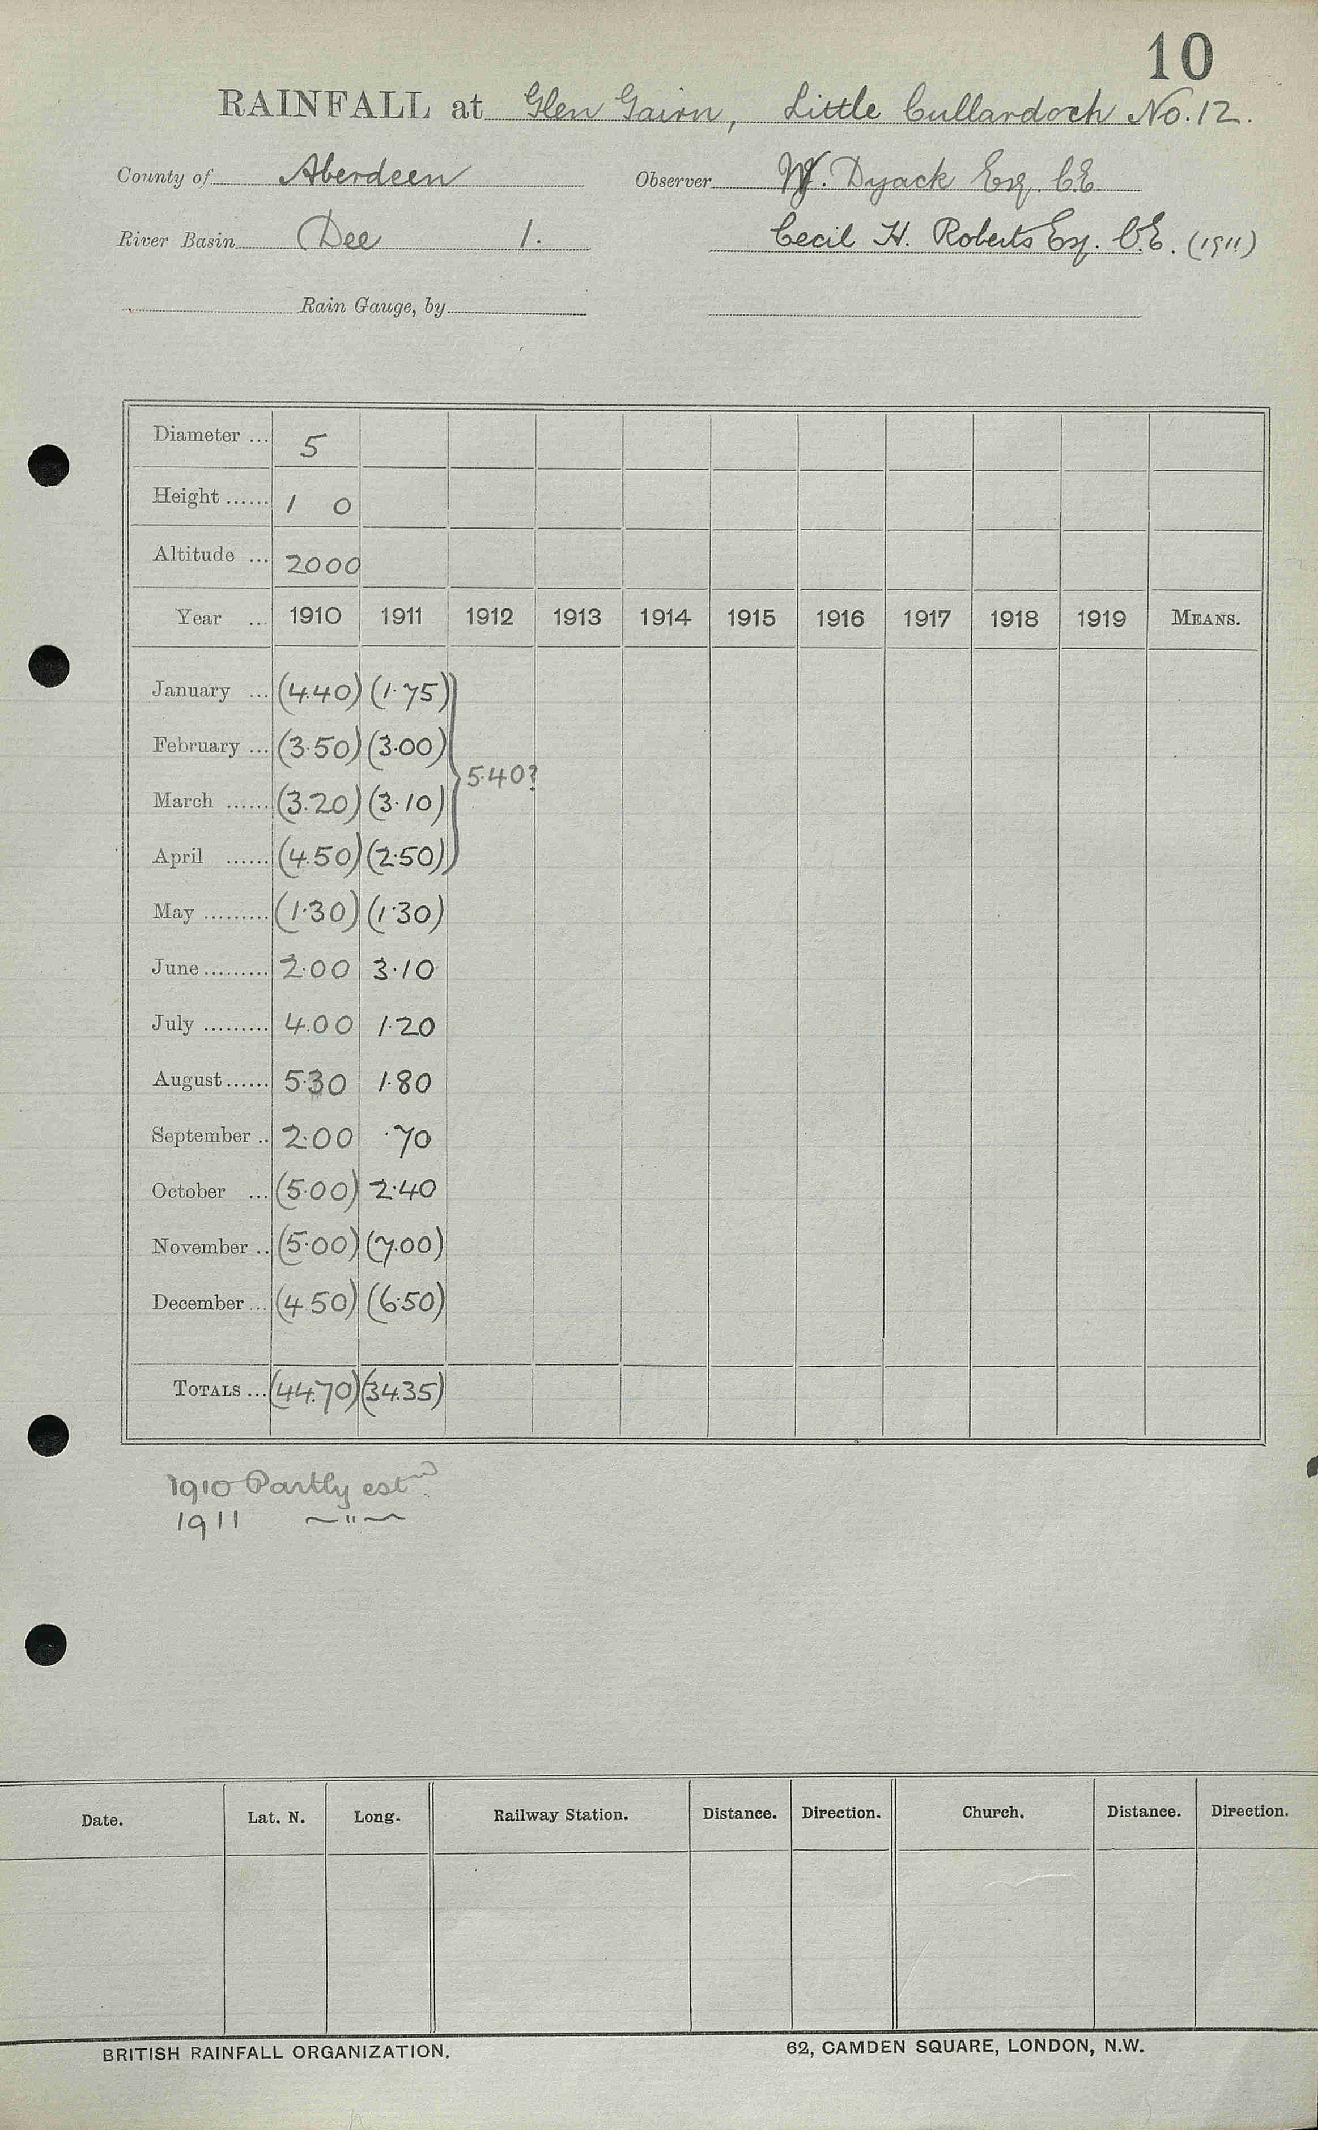 10
RAINFALL at Glen Gairn, Little Cullardoch No. 12.
County of Aberdeen Observer W. Dyack Esq. C.E.
River Basin Dee 1. Cecil H. Roberts Esq. C.E. (1911)
Rain Gauge, by
Diameter ... 5
Height ...... 1 0
Altitude ... 2000
Year ... 1910 1911 1912 1913 1914 1915 1916 1917 1918 1919 MEANS.
January ... (4.40) (1.75)
February ... (3.50) (3.00)
5.40?
March ...... (3.20) (3.10)
April ...... (4.50) (2.50)
May ......... (1.30) (1.30)
June ......... 2.00 3.10
July ......... 4.00 1.20
August ...... 5.30 1.80
September .. 2.00 .70
October ... (5.00) 2.40
November .. (5.00) (7.00)
December ... (4.50) (6.50)
TOTALS ... (44.70) (34.35)
1910 Partly estd.
1911 ~"~
Date. Lat. N. Long. Railway Station. Distance. Direction. Church. Distance. Direction.
BRITISH RAINFALL ORGANIZATION. 62, CAMDEN SQUARE, LONDON, N.W.